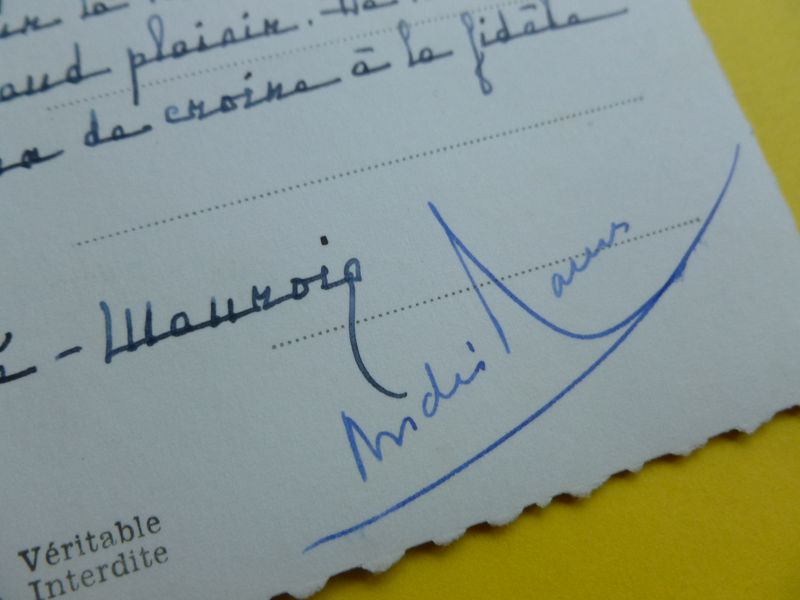 ur la
and plaisir.
de croire à la fidèle
é - Maurois
André Maurois
Véritable
Interdite